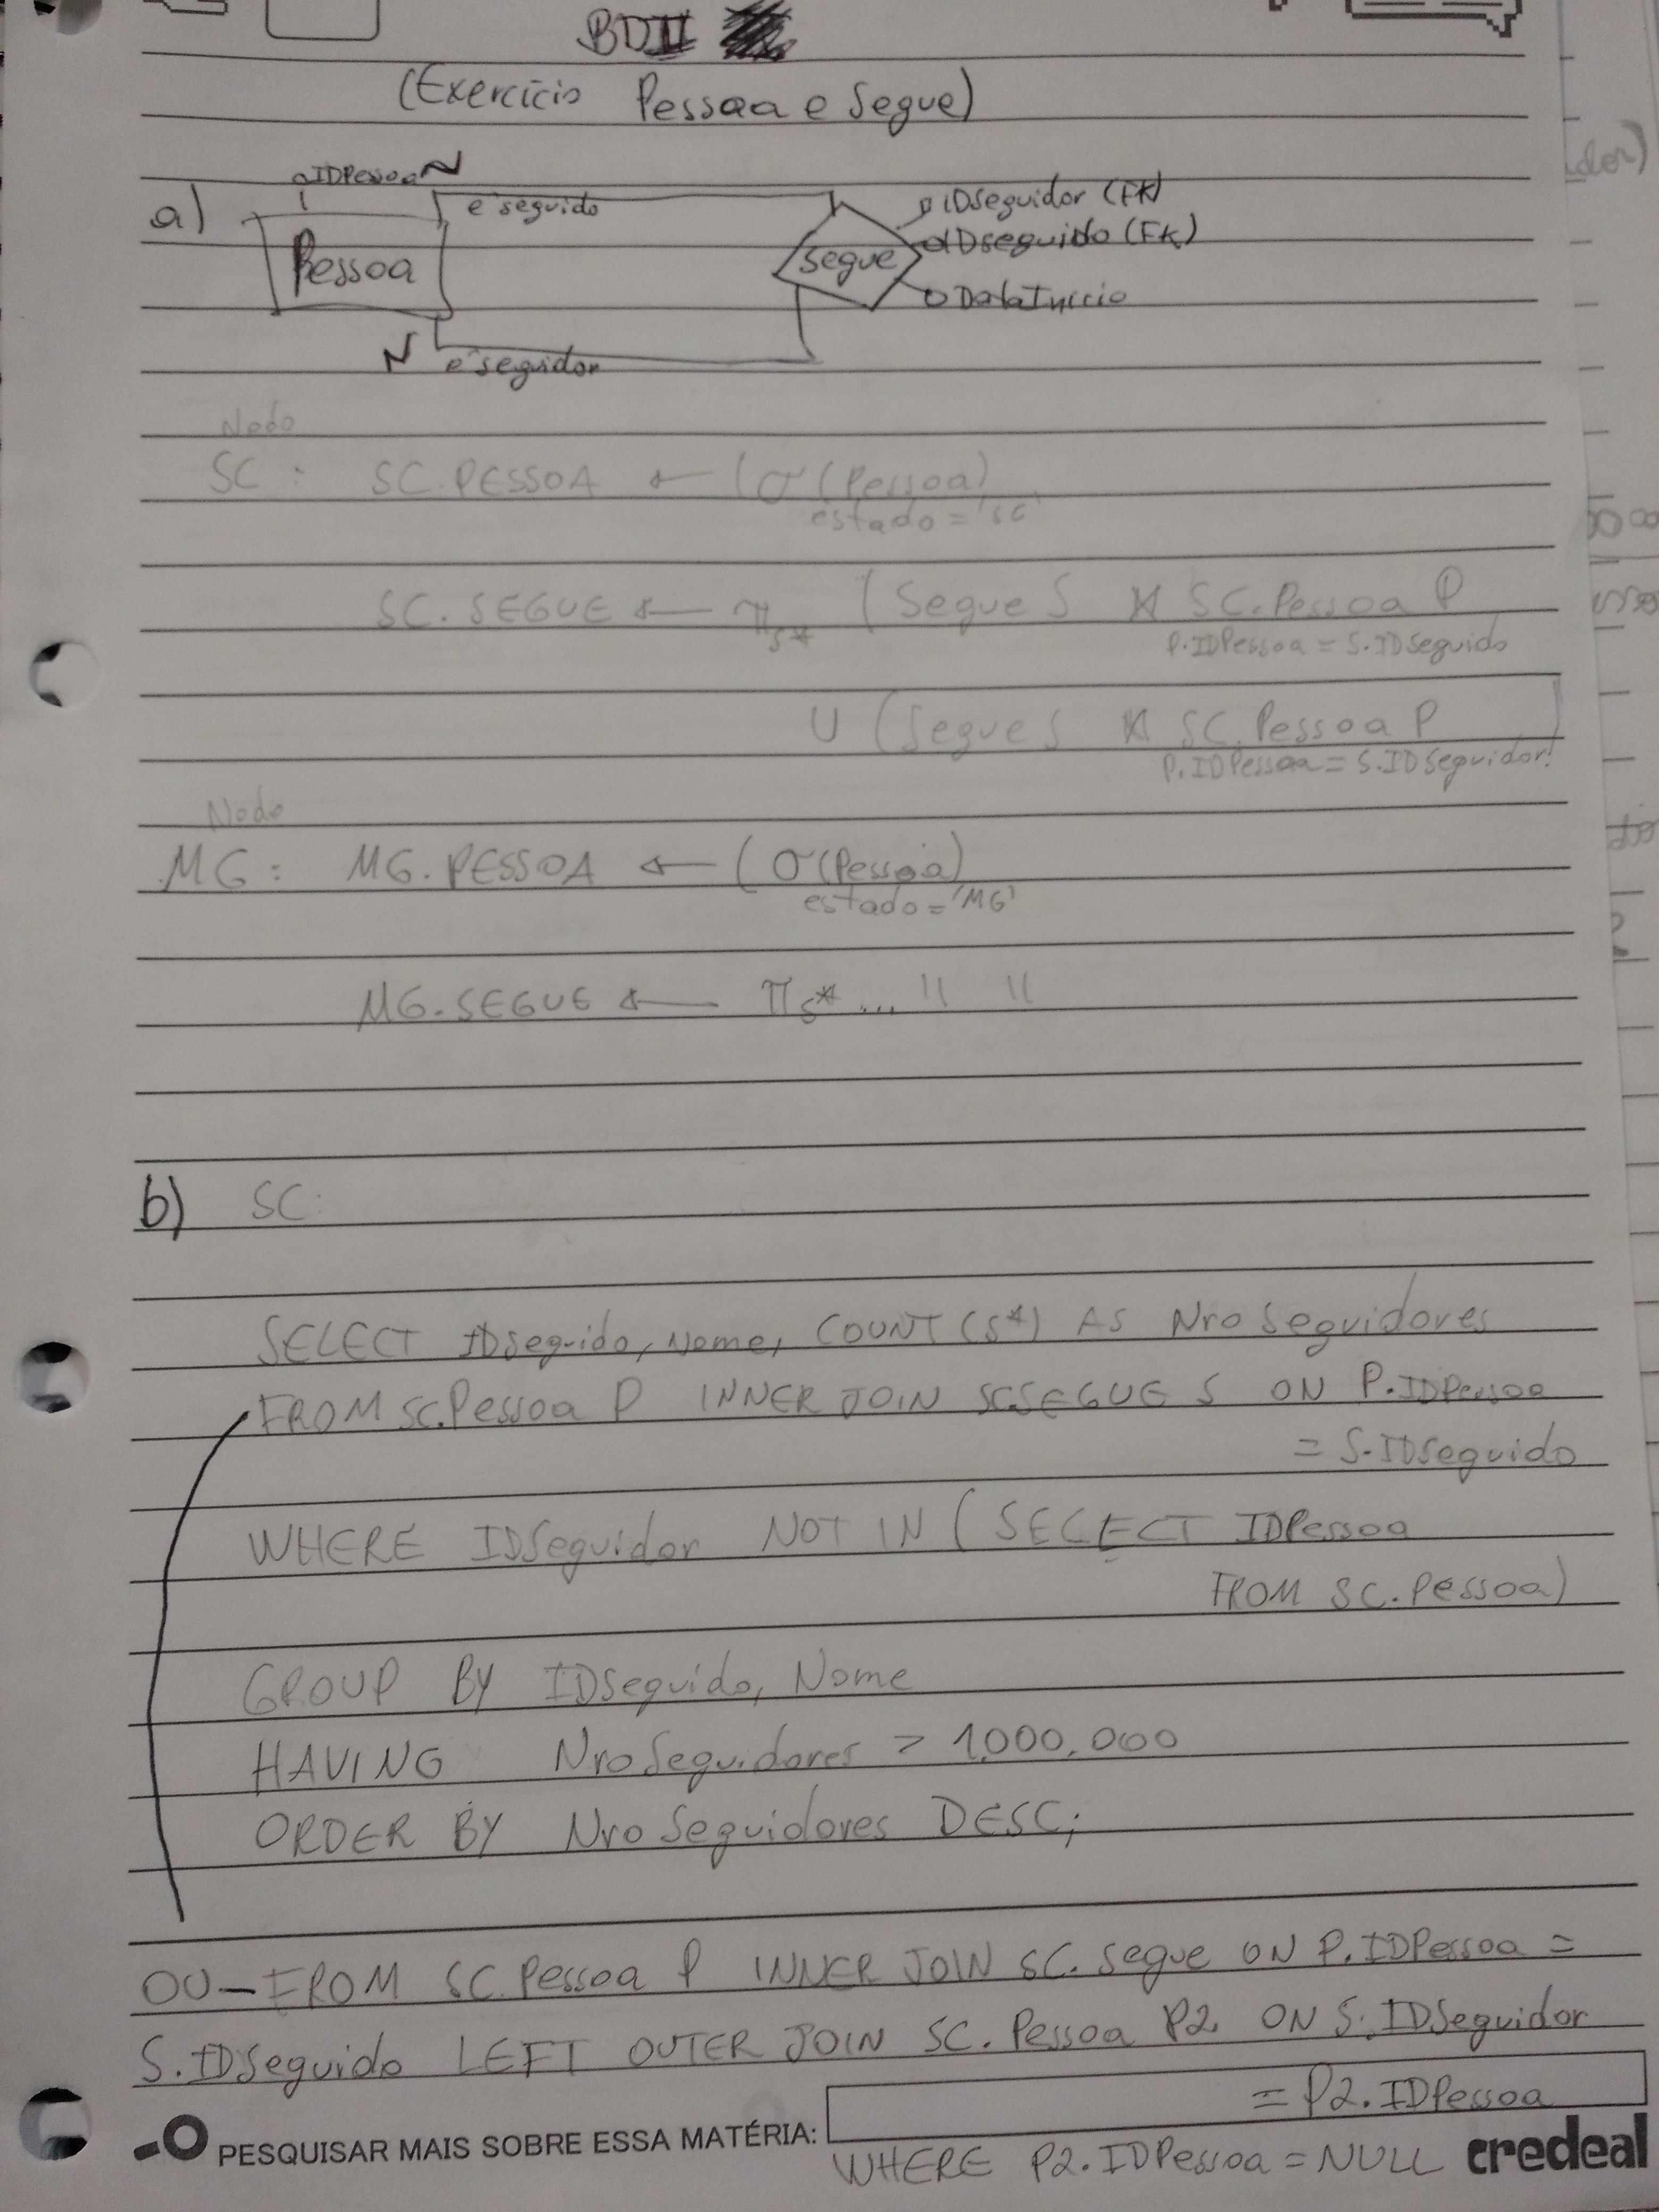 BDII
(Exercício Pessoa e Segue)
a) IDPessoa N é seguido IDseguidor (FK)
Pessoa Segue IDseguido (FK)
DataInicio
N é seguidor
Nodo
SC: SC.PESSOA ← (σ (Pessoa)
estado = 'SC'
SC.SEGUE ← π S* (Segue S ⋈ SC.Pessoa P
P.IDPessoa = S.IDSeguido
U (Segue S ⋈ SC.Pessoa P)
P.IDPessoa = S.IDSeguidor
Nodo
MG: MG.PESSOA ← (σ (Pessoa)
estado = 'MG'
MG.SEGUE ← π S* ... " "
b) SC:
SELECT IDseguido, Nome, COUNT (S*) AS NroSeguidores
FROM SC.Pessoa P INNER JOIN SC.SEGUE S ON P.IDPessoa
= S.IDSeguido
WHERE IDSeguidor NOT IN (SELECT IDPessoa
FROM SC.Pessoa)
GROUP BY IDSeguido, Nome
HAVING NroSeguidores > 1.000.000
ORDER BY NroSeguidores DESC;
OU - FROM SC.Pessoa P INNER JOIN SC.Segue ON P.IDPessoa =
S.IDSeguido LEFT OUTER JOIN SC.Pessoa P2 ON S.IDSeguidor
= P2.IDPessoa
PESQUISAR MAIS SOBRE ESSA MATÉRIA:
WHERE P2.IDPessoa = NULL credeal